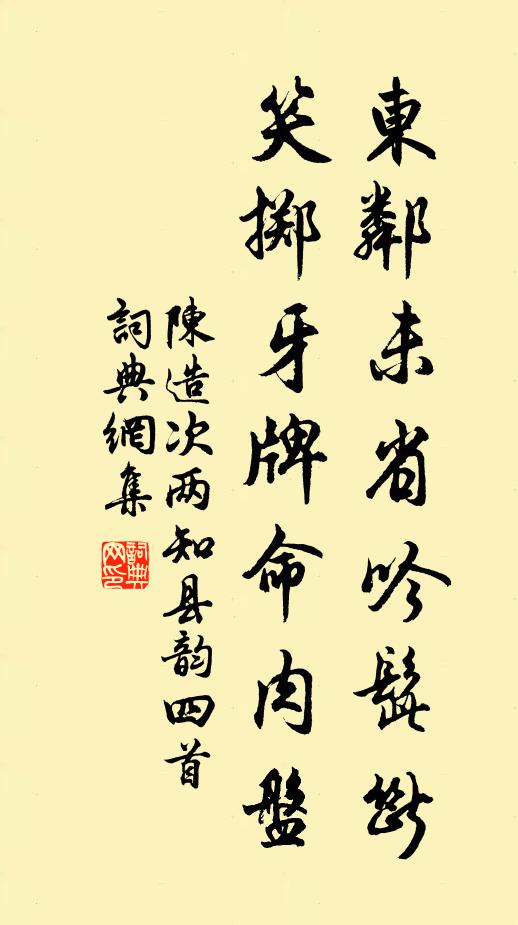 東鄰未省吟髭斷
笑擲牙牌命肉盤
陳造次两知县韵四首
詞典網集
詞典
网印